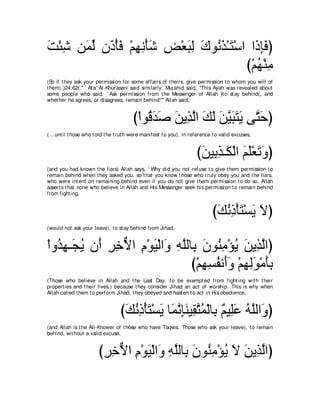 ﴿فَإِذَا اسْتَـْذَنُوكَ لِبَعْضِ شَأْنِهِمْ فَأْذَن لِّمَن شِئْتَ
مِنْهُمْ﴾
(So if they ask your permission for some affairs of theirs, give permission to whom you will of
them) )24:62(.'' `Ata' Al-Khurasani said similarly. Mujahid said, "This Ayah was revealed about
some people who said, `Ask permission from the Messenger of Allah )to stay behind(, and
whether he agrees, or disagrees, remain behind!''' Allah said,
﴿حَتَّى يَتَبَيَّنَ لَكَ الَّذِينَ صَدَقُواْ﴾
(...until those who told the truth were manifest to you), in reference to valid excuses,
﴿وَتَعْلَمَ الْكَـذِبِينَ﴾
(and you had known the liars) Allah says, `Why did you not refuse to give them permission to
remain behind when they asked you, so that you know those who truly obey you and the liars,
who were intent on remaining behind even if you do not give them permission to do so. Allah
asserts that none who believe in Allah and His Messenger seek his permission to remain behind
from fighting,
﴿لاَ يَسْتَأْذِنُكَ﴾
(would not ask your leave), to stay behind from Jihad,
﴿الَّذِينَ يُؤْمِنُونَ بِاللَّهِ وَالْيَوْمِ الاٌّخِرِ أَن يُجَـهِدُواْ
بِأَمْوَلِهِمْ وَأَنفُسِهِمْ﴾
(Those who believe in Allah and the Last Day, to be exempted from fighting with their
properties and their lives.) because they consider Jihad an act of worship. This is why when
Allah called them to perform Jihad, they obeyed and hasten to act in His obedience,
﴿وَاللَّهُ عَلِيمٌ بِالْمُتَّقِينَإِنَّمَا يَسْتَأْذِنُكَ﴾
(and Allah is the All-Knower of those who have Taqwa. Those who ask your leave), to remain
behind, without a valid excuse,
﴿الَّذِينَ لاَ يُؤْمِنُونَ بِاللَّهِ وَالْيَوْمِ الاٌّخِرِ﴾